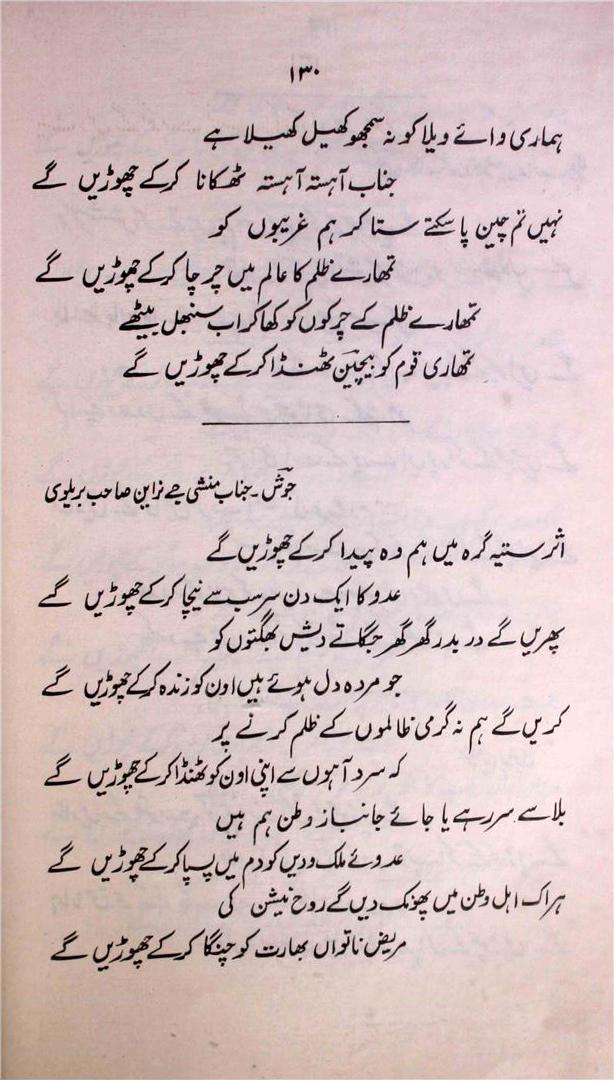 ۱۳۰
ہماری وائے ویلا کو نہ سمجھو کھیل کھیلا ہے
جناب آہستہ آہستہ ٹھکانا کر کے چھوڑیں گے
نہیں تم چین پا سکتے ستا کر ہم غریبوں کو
تمھارے ظلم کا عالم میں چرچا کر کے چھوڑیں گے
تمھارے ظلم کے چرکوں کو کھا کر اب سنبھل بیٹھے
تمھاری قوم کو بیچین ٹھنڈا کر کے چھوڑیں گے
جوش ۔ جناب منشی جے نراین صاحب بریلوی
اثر ستیہ گرہ میں ہم وہ پیدا کر کے چھوڑیں گے
عدو کا ایک دن سر سب سے نیچا کر کے چھوڑیں گے
پھریں گے در بدر گھر گھر جگاتے دیش بھگتوں کو
جو مردہ دل ہوئے ہیں اون کو زندہ کر کے چھوڑیں گے
کریں گے ہم نہ گرمی ظالموں کے ظلم کرنے پر
کہ سرد آہوں سے اپنی اون کو ٹھنڈا کر کے چھوڑیں گے
بلا سے سر رہے یا جائے جانباز وطن ہم ہیں
عدوئے ملک و دیں کو دم میں پسپا کر کے چھوڑیں گے
ہر اک اہل وطن میں پھونک دیں گے روح نیشن کی
مریض ناتواں بھارت کو چنگا کر کے چھوڑیں گے